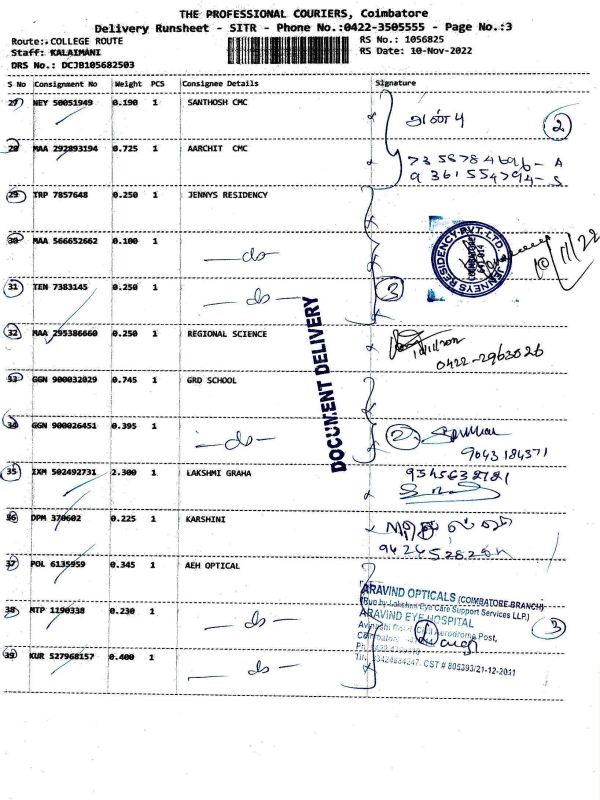 THE PROFESSIONAL COURIERS, Coimbatore
Delivery Runsheet - SITR - Phone No.:0422-3505555 - Page No.:3
Route: COLLEGE ROUTE RS No.: 1056825
Staff: KALAIMANI RS Date: 10-Nov-2022
DRS No.: DCJB105682503
S No Consignment No Weight PCS Consignee Details Signature
27 NEY 50051949 0.190 1 SANTHOSH CMC அன்பு 2
28 MAA 292893194 0.725 1 AARCHIT CMC
29 TRP 7857648 0.250 1 JENNYS RESIDENCY
JENNEYS RESIDENCY PVT. LTD. COIMBATORE 641 014
10/11/22
30 MAA 566652662 0.100 1 -do-
31 TEN 7383145 0.250 1 -do- 3
DOCUMENT DELIVERY
32 MAA 295386660 0.250 1 REGIONAL SCIENCE
0422-2963026
33 GGN 900032029 0.745 1 GRD SCHOOL
34 GGN 900026451 0.395 1 -do- 2
9043184371
35 IXM 502492731 2.300 1 LAKSHMI GRAHA
36 DPM 370602 0.225 1 KARSHINI
37 POL 6135959 0.345 1 AEH OPTICAL
ARAVIND OPTICALS (COIMBATORE BRANCH)
(Run by Lakshmi Eye Care Support Services LLP.)
ARAVIND EYE HOSPITAL
38 MTP 1190338 0.230 1 -do- 3
Aerodrome Post,
39 KUR 527968157 0.400 1 -do-
CST # 805393/21-12-2011